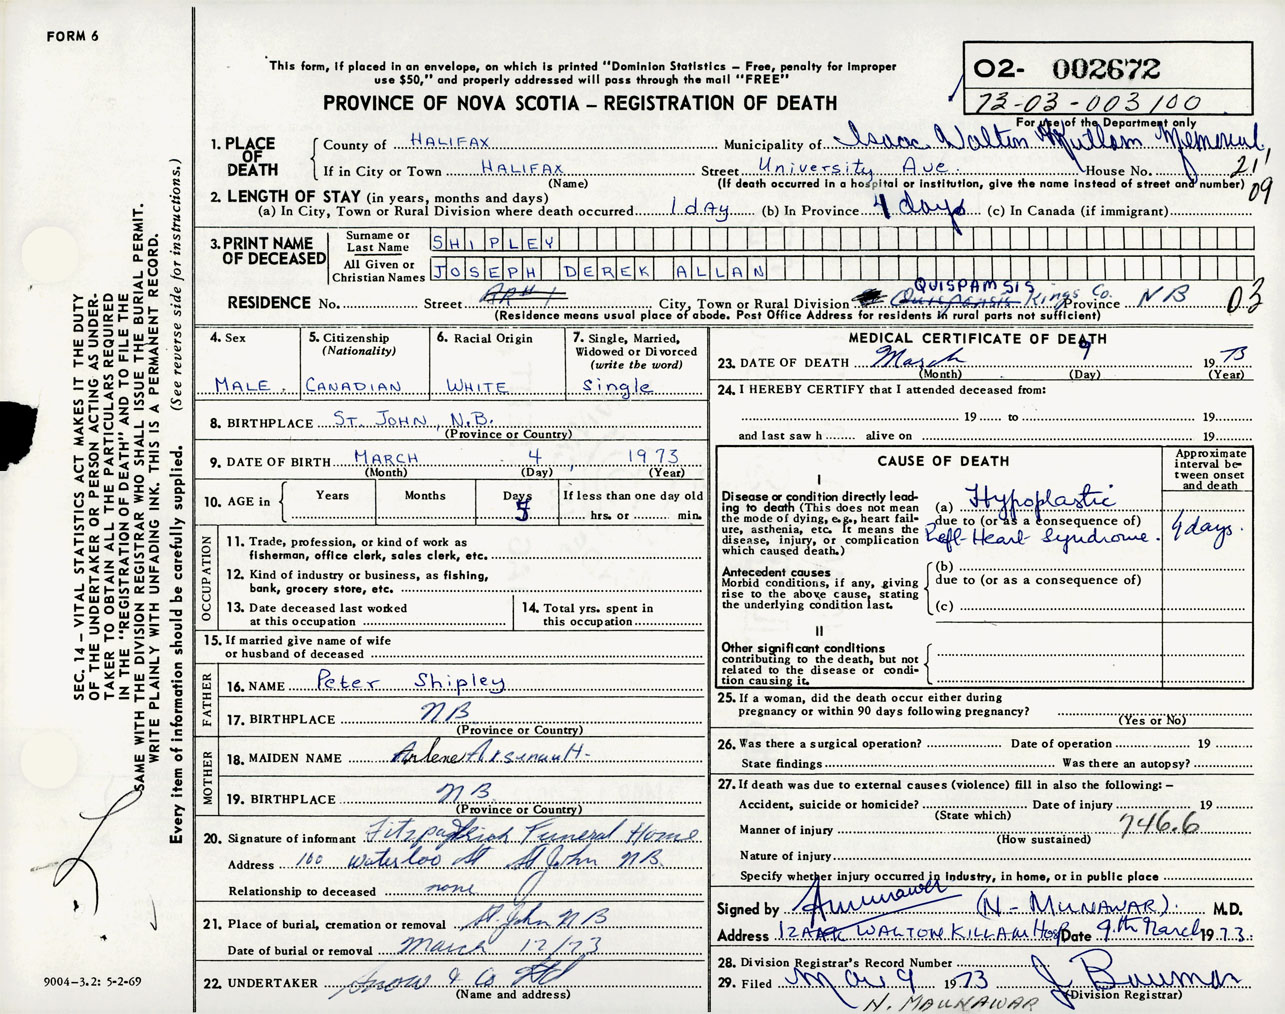 FORM 6
This form, if placed in an envelope, on which is printed "Dominion Statistics – Free, penalty for improper
use $50," and properly addressed will pass through the mail "FREE"
PROVINCE OF NOVA SCOTIA – REGISTRATION OF DEATH
02- 002672
73-03-003100
For use of the Department only
SEC. 14 – VITAL STATISTICS ACT MAKES IT THE DUTY
OF THE UNDERTAKER OR PERSON ACTING AS UNDER-
TAKER TO OBTAIN ALL THE PARTICULARS REQUIRED
IN THE "REGISTRATION OF DEATH" AND TO FILE THE
SAME WITH THE DIVISION REGISTRAR WHO SHALL ISSUE THE BURIAL PERMIT.
WRITE PLAINLY WITH UNFADING INK. THIS IS A PERMANENT RECORD.
Every item of information should be carefully supplied. (See reverse side for instructions.)
1. PLACE OF DEATH
County of HALIFAX Municipality of Isaac Walton Killam Memorial
If in City or Town HALIFAX Street University Ave. House No. 21
(Name) (If death occurred in a hospital or institution, give the name instead of street and number)
09
2. LENGTH OF STAY (in years, months and days)
(a) In City, Town or Rural Division where death occurred 1 day (b) In Province 4 days (c) In Canada (if immigrant)
3. PRINT NAME OF DECEASED
Surname or Last Name SHIPLEY
All Given or Christian Names JOSEPH DEREK ALLAN
RESIDENCE No. Street Apt 1 City, Town or Rural Division QUISPAMSIS Quispansis Kings Co. Province NB 03
(Residence means usual place of abode. Post Office Address for residents in rural parts not sufficient)
4. Sex MALE.
5. Citizenship (Nationality) CANADIAN
6. Racial Origin WHITE
7. Single, Married, Widowed or Divorced (write the word) Single
8. BIRTHPLACE ST. JOHN, N.B.
(Province or Country)
9. DATE OF BIRTH MARCH 4, 1973
(Month) (Day) (Year)
10. AGE in Years Months Days 5 If less than one day old
hrs. or min.
OCCUPATION
11. Trade, profession, or kind of work as
fisherman, office clerk, sales clerk, etc.
12. Kind of industry or business, as fishing,
bank, grocery store, etc.
13. Date deceased last worked
at this occupation
14. Total yrs. spent in
this occupation
15. If married give name of wife
or husband of deceased
FATHER
16. NAME Peter Shipley
17. BIRTHPLACE NB
(Province or Country)
MOTHER
18. MAIDEN NAME Arlene Arsenault
19. BIRTHPLACE NB.
(Province or Country)
20. Signature of informant Fitzpatrick Funeral Home
Address 100 Waterloo St St John NB
Relationship to deceased none
21. Place of burial, cremation or removal St. John NB
Date of burial or removal March 12/73
22. UNDERTAKER Snow & Co Ltd
(Name and address)
MEDICAL CERTIFICATE OF DEATH
23. DATE OF DEATH March 9 1973
(Month) (Day) (Year)
24. I HEREBY CERTIFY that I attended deceased from:
19 to 19
and last saw h alive on 19
CAUSE OF DEATH
Approximate interval between onset and death
I
Disease or condition directly lead-
ing to death (This does not mean
the mode of dying, e.g., heart fail-
ure, asthenia, etc. It means the
disease, injury, or complication
which caused death.)
(a) Hypoplastic
due to (or as a consequence of)
Left Heart Syndrome. 4 days.
Antecedent causes
Morbid conditions, if any, giving
rise to the above cause, stating
the underlying condition last.
(b)
due to (or as a consequence of)
(c)
II
Other significant conditions
contributing to the death, but not
related to the disease or condi-
tion causing it.
25. If a woman, did the death occur either during
pregnancy or within 90 days following pregnancy?
(Yes or No)
26. Was there a surgical operation? Date of operation 19
State findings Was there an autopsy?
27. If death was due to external causes (violence) fill in also the following: –
Accident, suicide or homicide? Date of injury 19
(State which)
Manner of injury 746.6
(How sustained)
Nature of injury
Specify whether injury occurred in industry, in home, or in public place
Signed by (N-MUNAWAR). M.D.
Address IZAAK WALTON KILLAM Hosp Date 9th March 1973.
28. Division Registrar's Record Number
29. Filed Mar 9 1973
(Division Registrar)
N. MAUNAWAR
9004-3.2: 5-2-69